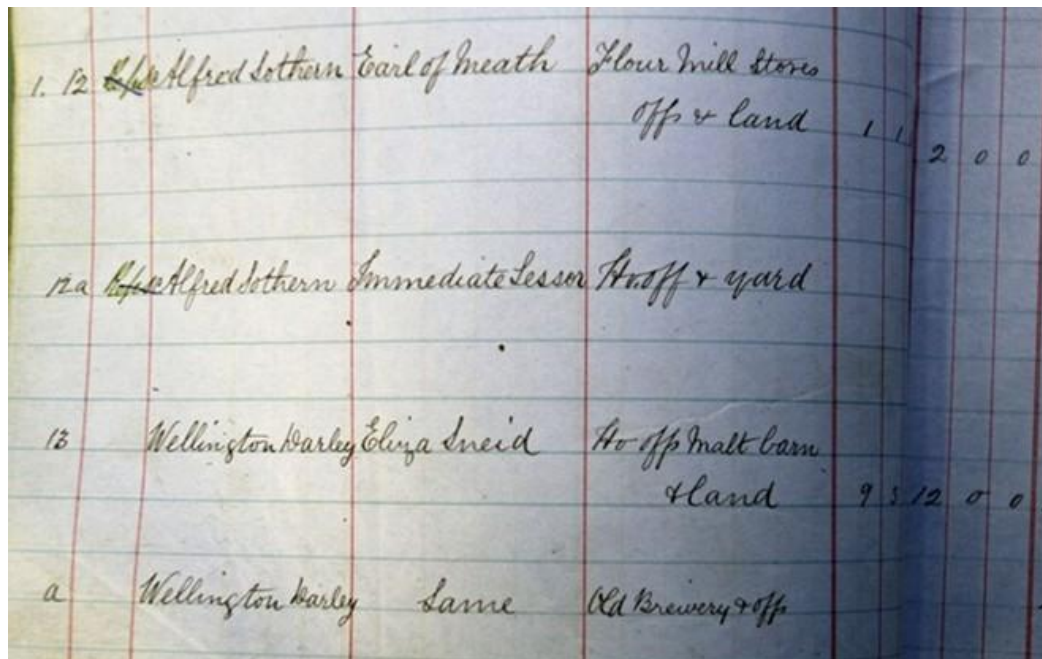 1. 12 Alfred Sothern Earl of Meath Flour Mill Stores
offs & land 1 1
2 0 0
12a Alfred Sothern Immediate Lessor Ho. off & yard
13 Wellington Darley Eliza Sneid Ho offs Malt barn
& land 9 3 12 0 0
a Wellington Darley Same Old Brewery & offs